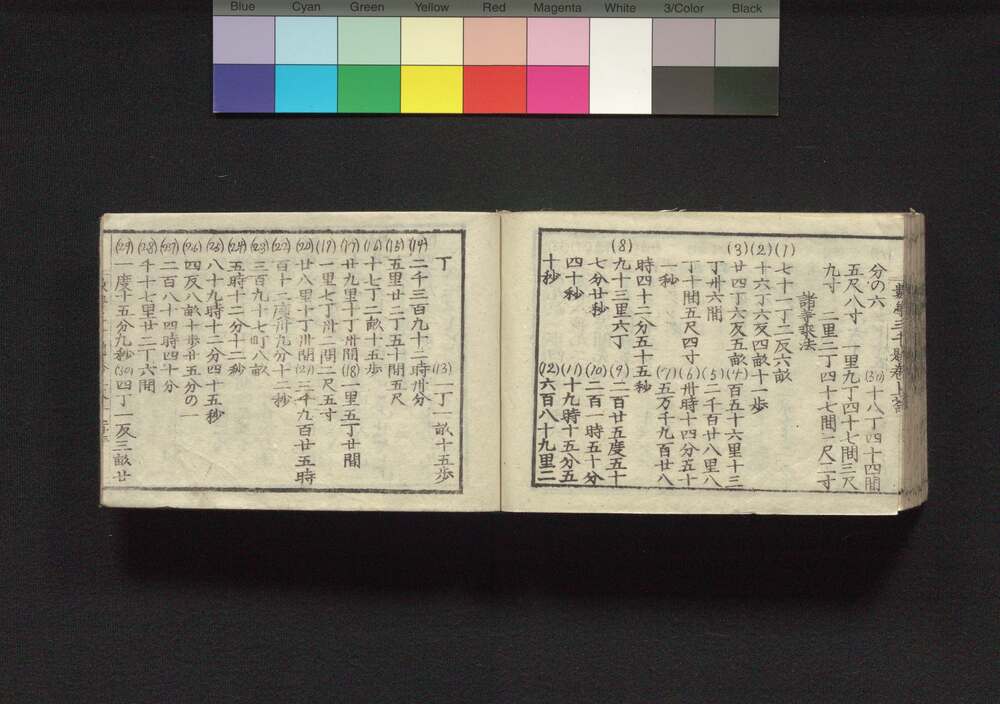 Blue Cyan Green Yellow Red Magenta White 3/Color Black
分の六 (30) 十八丁四十四間
五尺八寸 一里九丁四十七間三尺
九寸 二里二丁四十七間一尺二寸
諸等乗法
(1) 七十一丁二反六畝
(2) 十六丁六反四畝十一歩
(3) 廿四丁六反五畝 (4) 百五十六里十三
丁卅六間 (5) 二千百廿八里八
丁十間五尺四寸 (6) 卅時十四分五十
一秒 (7) 五万千九百廿八
時四十二分五十五秒
(8) 九十三里六丁 (9) 二百廿五度五十
七分廿秒 (10) 二百一時五十分
四十秒 (11) 十九時十五分五
十秒 (12) 六百八十九里二
丁 (13) 一丁一畝十五歩
(14) 二千三百九十二時卅分
(15) 五里廿二丁五十間五尺
(16) 十七丁二畝十五歩
(17) 廿九里十丁卅間 (18) 一里五丁廿間
(19) 一里七丁卅二間二尺五寸
(20) 廿八里十丁卅間 (21) 三千九百廿五時
(22) 百十二度卅九分十二秒
(23) 三百九十七丁八畝
(24) 五時十二分十二秒
(25) 八十九時十二分四十五秒
(26) 四反八畝十歩廿五分の一
(27) 二百八十四時四十分
(28) 千十七里廿二丁六間
(29) 一度十五分九秒 (30) 四丁一反三畝廿